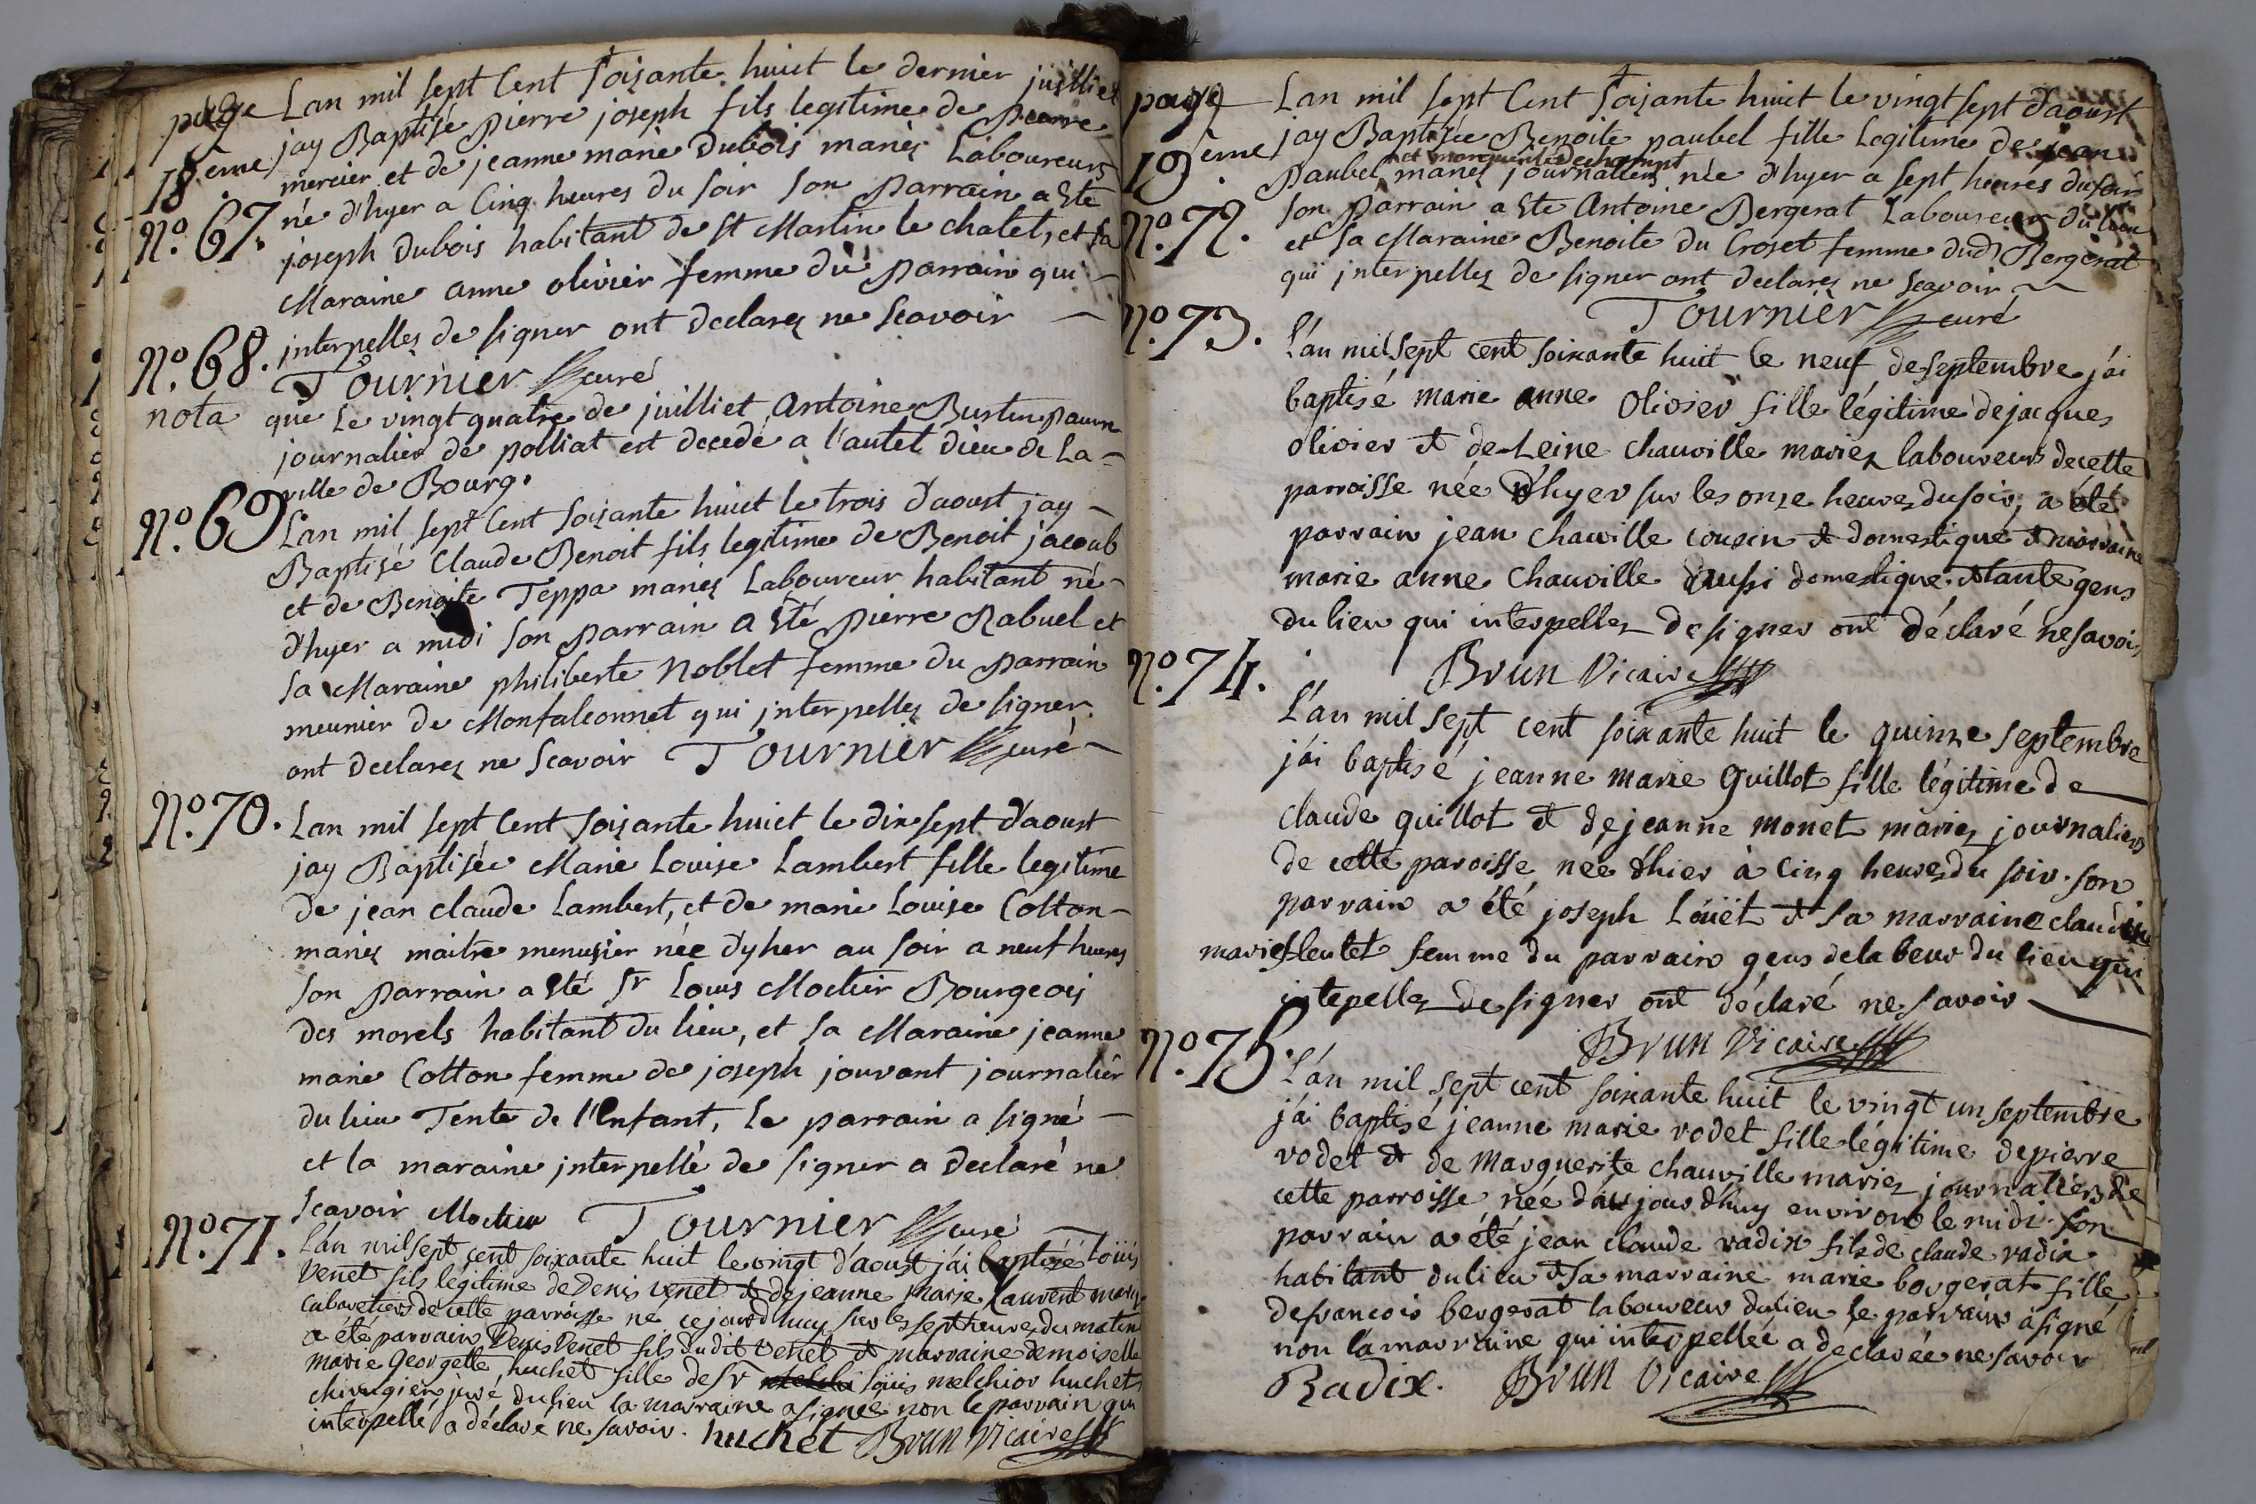 page Lan mil sept Cent soixante huict le dernier juilliet
18eme jay Baptisé Pierre joseph fils legitime de Pierre
mercier et de jeanne marie Dubois mariés Laboureurs
No. 67. né d'hyer a Cinq heures du soir son Parrain a Eté
joseph Dubois habitant de st Martin le chatel, et sa
Maraine anne olivier femme du Parrain qui
No. 68. interpelles de signer ont declarez ne scavoir
Tournier curé
nota que Le vingt quatre de juilliet Antoine
journalier de polliat est decedé a l'autel Dieu de La
ville de Bourg.
No. 69 Lan mil sept Cent soixante huict le trois d'aoust jay
Baptisé Claude Benoit fils legitime de Benoit jacoub
et de Benoite Teppa mariés Laboureur habitant né
d'hyer a midi son parrain a Eté Pierre Rabuel et
sa Maraine philiberte Noblet femme du parrain
meunier de Monfalconnet qui interpellez de signer
ont declarez ne scavoir Tournier curé
No. 70. Lan mil sept Cent soixante huict le dix sept d'aoust
jay Baptisée Marie Louise Lambert fille legitime
de jean claude Lambert, et de marie Louise Cotton
mariés maitre menusier née d'yher au soir a neuf heures
son parrain a Eté Sr Louis Moctier Bourgeois
des morels habitant du lieu, et sa Maraine jeanne
marie Cotton femme de joseph jouvant journalier
du lieu Tente de l'Enfant, le parrain a signé
et la maraine interpellé de signer a declaré ne
scavoir Moctier Tournier curé
No. 71. L'an mil sept cent soixante huit le vingt d'aoust j'ai baptisé Loüis
Venet fils légitime de Denis venet & de jeanne Marie Laurent mariez
cabaretiers de cette parroisse né ce jourd'huy sur les sept heures du matin
a été parrain Denis Venet fils dudit venet & marraine demoiselle
marie Georgette huchet fille de Sr Loüis melchior huchet
chirugien juré du lieu la marraine a signée non le parrain qui
interpellé a déclaré ne savoir. huchet Brun Vicaire
page Lan mil sept Cent soixante huict le vingt sept d'aoust
19eme jay Baptisée Benoite paubel fille Legitime de jean
et marguerite Dechampt
Paubel mariés journaliers née d'hyer a sept heures du soir
No. 72. son parrain a Eté Antoine Bergerat Laboureur du lieu
et sa Maraine Benoite du Croset femme dud Bergerat
qui interpellez de signer ont declarez ne scavoir
Tournier curé
No. 73. L'an mil sept cent soixante huit le neuf de septembre j'ai
baptisé marie anne olivier fille légitime de jacques
olivier & de Leine chauville mariez laboureurs de cette
parroisse née d'hyer sur les onze heures du soir, a été
parrain jean chauville cousin & domestique & marraine
marie anne chauville aussi domestique & tante gens
du lieu qui interpellez de signer ont déclaré ne savoir
Brun Vicaire
No. 74. L'an mil sept cent soixante huit le quinze septembre
j'ai baptisé jeanne marie Guillot fille légitime de
claude guillot & de jeanne monet mariez journaliers
de cette paroisse née d'hier à cinq heures du soir. son
parrain a été joseph Loüet & sa marraine claudine
marie fleutet femme du parrain gens de labeur du lieu qui
intepellez de signer ont déclaré ne savoir
Brun Vicaire
No. 75. L'an mil sept cent soixante huit le vingt un septembre
j'ai baptisé jeanne marie vodet fille légitime de pierre
vodet & de Marguerite chauville mariez journaliers de
cette parroisse née d'aujourd'huy environ le midi. son
parrain a été jean claude radix fils de claude radix
habitant du lieu & sa marraine marie borgerat fille
de francois bergerat laboureur du lieu le parrain à signé
non la marraine qui interpellée a déclarée ne savoir
Radix. Brun Vicaire